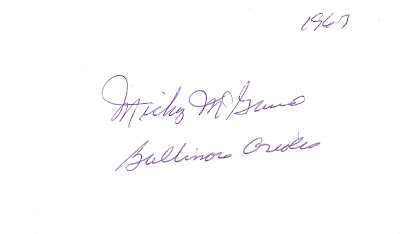 1967
Mickey McGuire
Baltimore Orioles